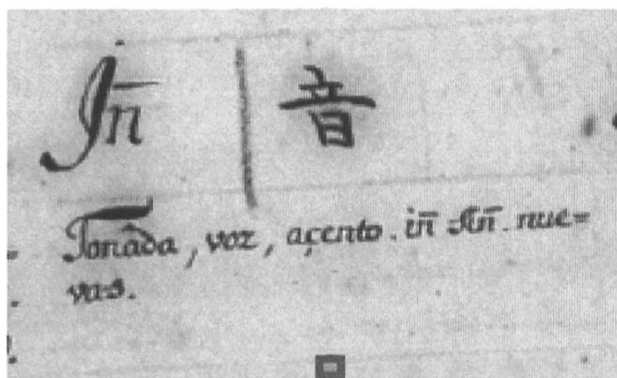 Jn̄ 音
Tonâda, voz, açento. in̄ sin̄. nue=
vas.